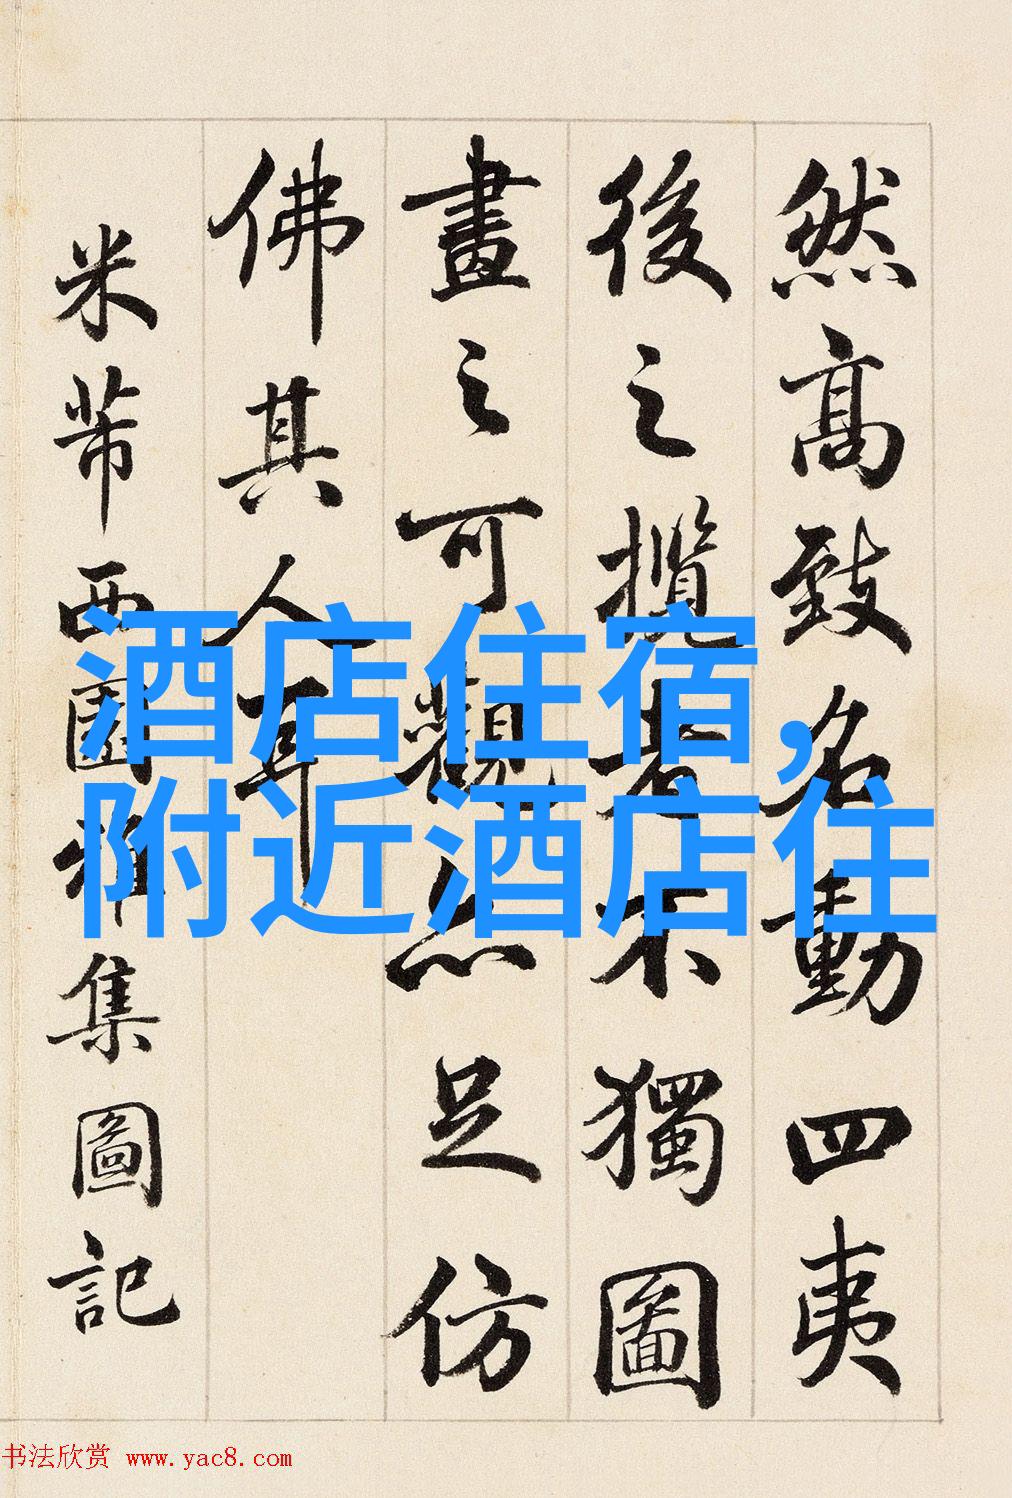 然高致名動四夷
後之攬者不獨圖
畫之可觀亦足仿
佛其人耳
米芾西園雅集圖記
酒店住宿,
附近酒店住
书法欣赏 www.yac8.com